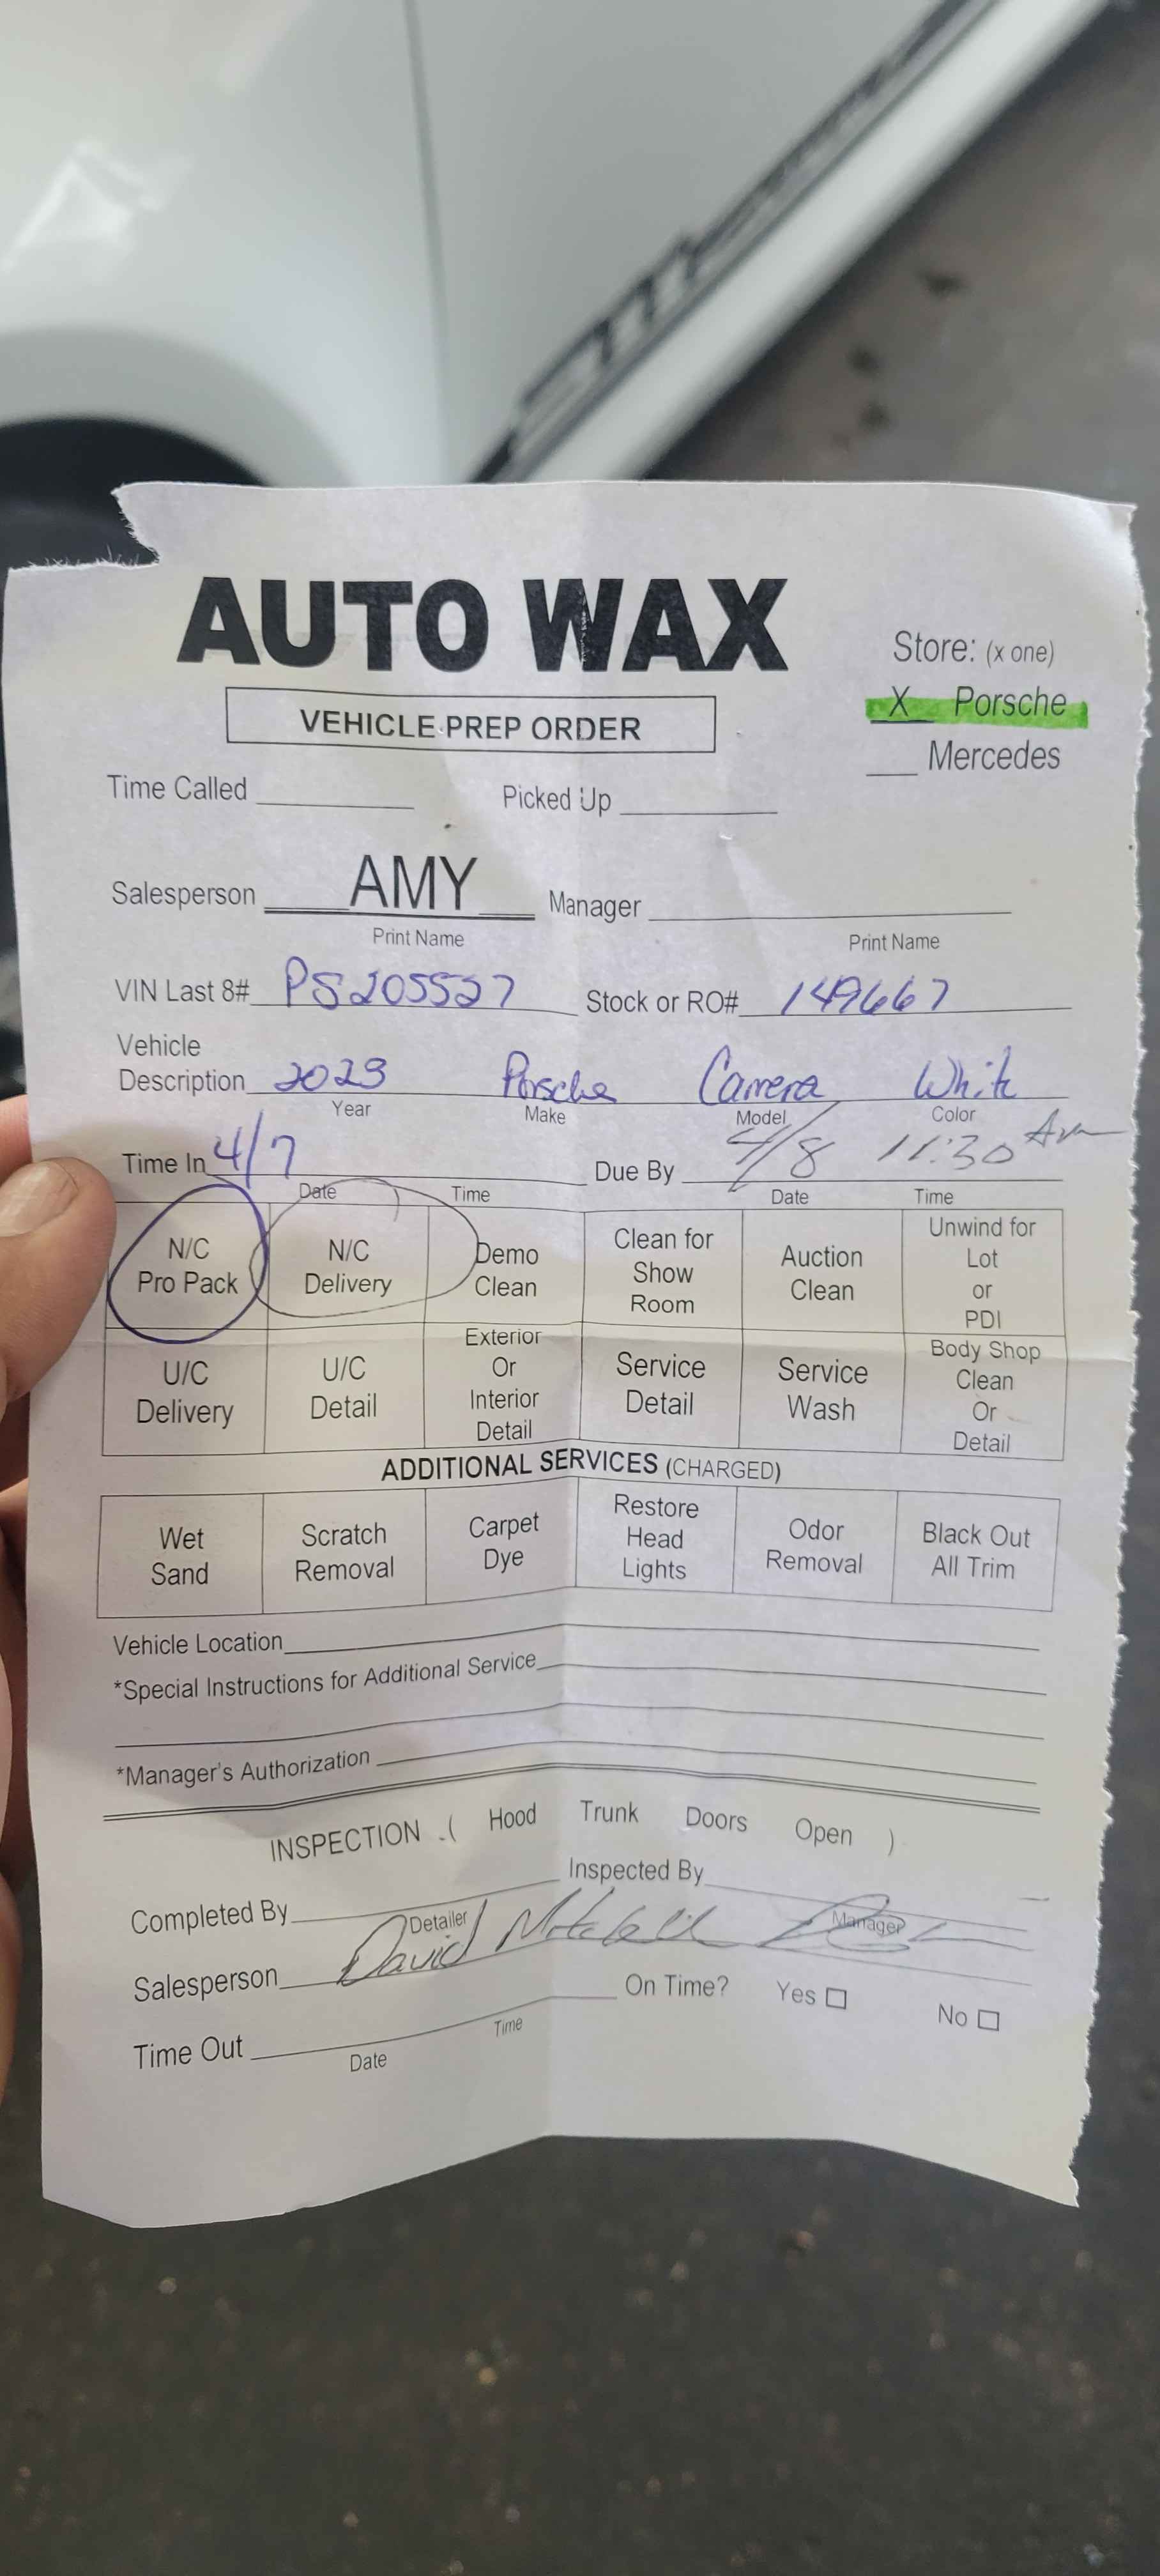 AUTO WAX
Store: (x one)
X Porsche
VEHICLE PREP ORDER
Mercedes
Time Called Picked Up
Salesperson AMY Manager
Print Name Print Name
VIN Last 8# PS205527 Stock or RO# 149667
Vehicle
Description 2023 Porsche Carrera White
Year Make Model Color
Time In 4/7 Due By 4/8 11:30 Am
Date Time Date Time
N/C Pro Pack
N/C Delivery
Demo Clean
Clean for Show Room
Auction Clean
Unwind for Lot or PDI
U/C Delivery
U/C Detail
Exterior Or Interior Detail
Service Detail
Service Wash
Body Shop Clean Or Detail
ADDITIONAL SERVICES (CHARGED)
Wet Sand
Scratch Removal
Carpet Dye
Restore Head Lights
Odor Removal
Black Out All Trim
Vehicle Location
*Special Instructions for Additional Service
*Manager's Authorization
INSPECTION ( Hood Trunk Doors Open )
Completed By Inspected By
Detailer Manager
Salesperson David Mitchell
On Time? Yes No
Time Out
Date Time